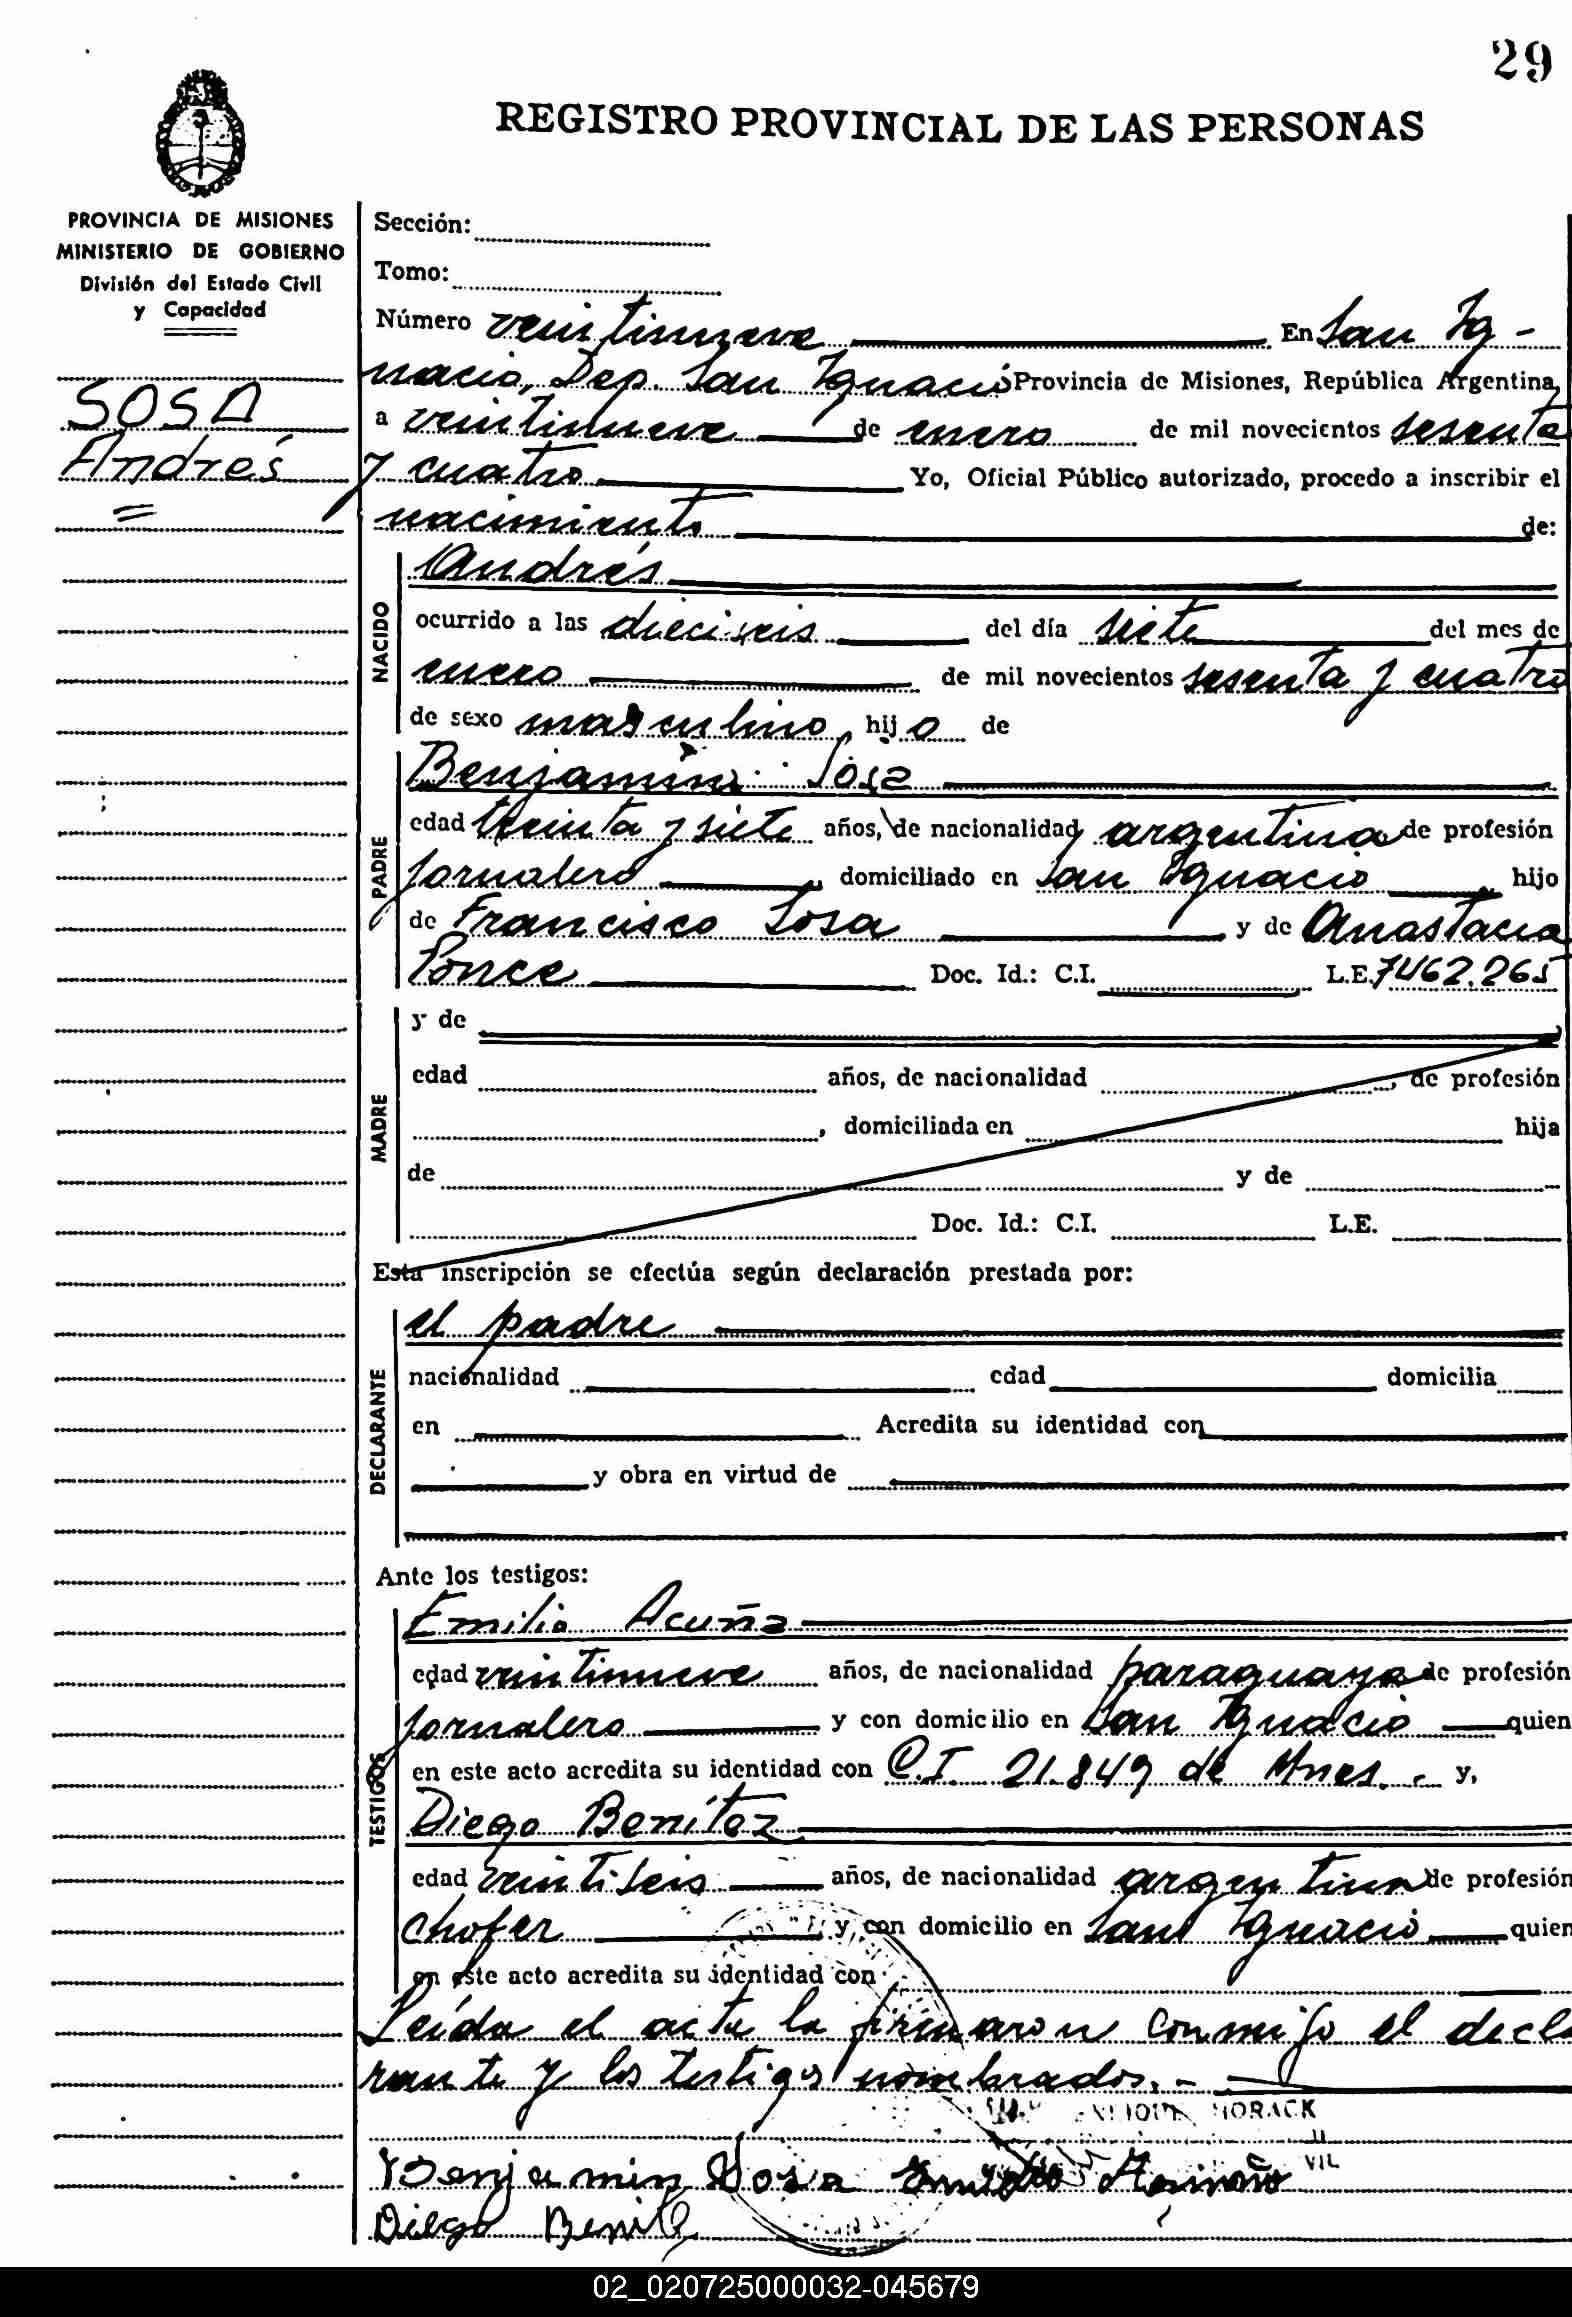 29
REGISTRO PROVINCIAL DE LAS PERSONAS
PROVINCIA DE MISIONES
MINISTERIO DE GOBIERNO
División del Estado Civil
y Capacidad
SOSA
Andrés
Sección:
Tomo:
Número veintinueve En San Ig-
nacio, Dep. San Ignacio Provincia de Misiones, República Argentina,
a veintinueve de enero de mil novecientos sesenta
y cuatro Yo, Oficial Público autorizado, procedo a inscribir el
nacimiento de:
NACIDO
Andrés
ocurrido a las dieciseis del día siete del mes de
enero de mil novecientos sesenta y cuatro
de sexo masculino, hijo de
PADRE
Benjamín Sosa
edad treinta y siete años, de nacionalidad argentina de profesión
jornalero, domiciliado en San Ignacio, hijo
de Francisco Sosa y de Anastacia
Ponce Doc. Id.: C.I. L.E. 7462.265
MADRE
y de
edad años, de nacionalidad , de profesión
, domiciliada en hija
de y de
Doc. Id.: C.I. L.E.
Esta inscripción se efectúa según declaración prestada por:
DECLARANTE
el padre
nacionalidad edad domicilia
en Acredita su identidad con
y obra en virtud de
Ante los testigos:
TESTIGOS
Emilio Acuña
edad veintinueve años, de nacionalidad paraguaya de profesión
jornalero y con domicilio en San Ignacio quien
en este acto acredita su identidad con C.I. 21.849 de Mnes.- y,
Diego Benítez
edad veintiseis años, de nacionalidad argentina de profesión
chofer y con domicilio en San Ignacio quien
en este acto acredita su identidad con
Leída el acta la firmaron conmigo el decla
rante y los testigos nombrados.-
HORACK
Benjamin Sosa
Diego
02_020725000032-045679